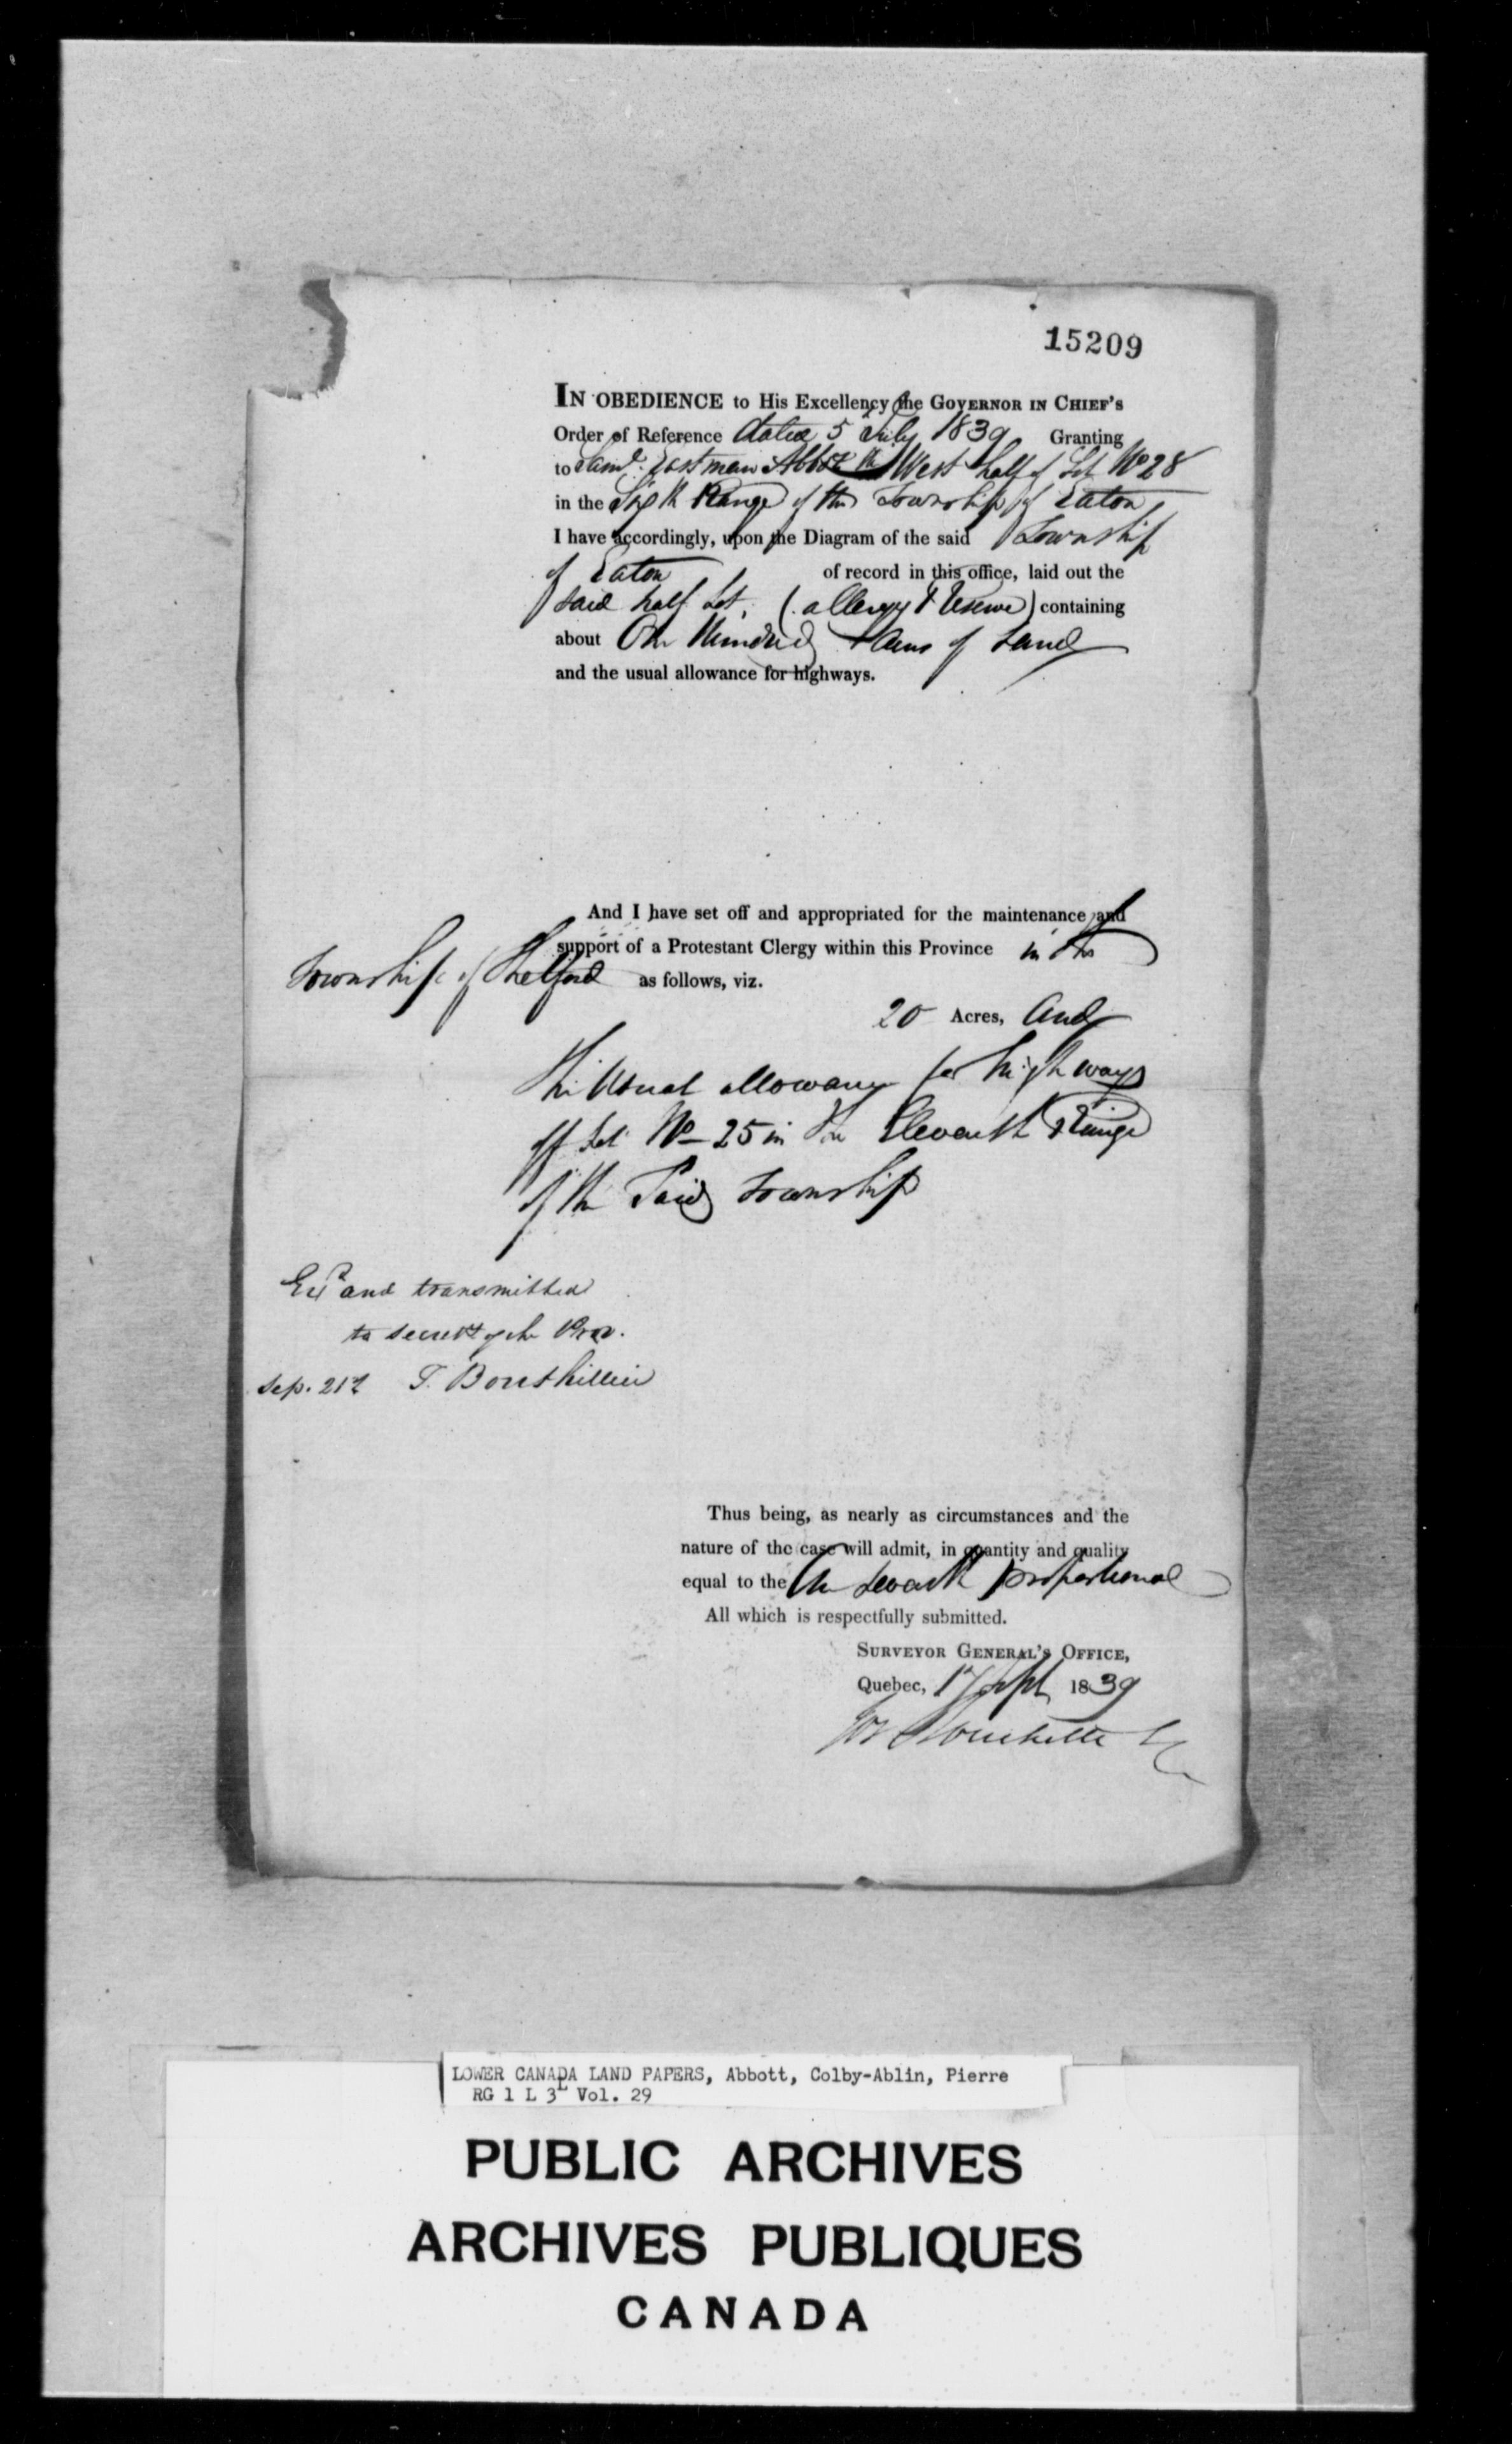 15209
IN OBEDIENCE to His Excellency the GOVERNOR IN CHIEF'S
Order of Reference dated 5 July 1839 Granting
to Saml. Eastman Abbott the West half of Lot No 28
in the Sixth Range of the Township of Eaton
I have accordingly, upon the Diagram of the said Township
of Eaton of record in this office, laid out the
said half Lot, (a Clergy Reserve) containing
about One Hundred Acres of Land
and the usual allowance for highways.
And I have set off and appropriated for the maintenance and
support of a Protestant Clergy within this Province in the
Township of as follows, viz.
20 Acres, and
the Usual allowance for highways
off Lot No 25 in the Eleventh Range
of the Said Township
and transmitted
to of the Prov.
Sep. 21st T. Bouthillier
Thus being, as nearly as circumstances and the
nature of the case will admit, in quantity and quality
equal to the One Seventh proportional
All which is respectfully submitted.
SURVEYOR GENERAL'S OFFICE,
Quebec, 17 Sept 1839
Jos Bouchette
LOWER CANADA LAND PAPERS, Abbott, Colby-Ablin, Pierre
RG 1 L 3L Vol. 29
PUBLIC ARCHIVES
ARCHIVES PUBLIQUES
CANADA